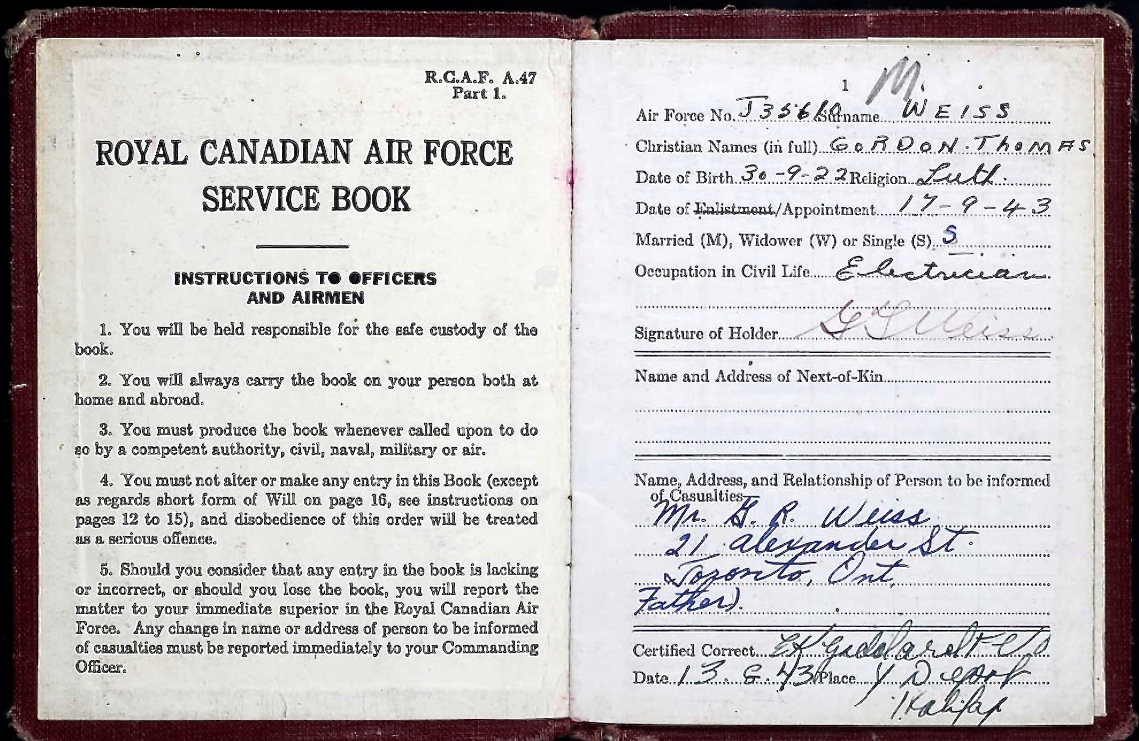 R.C.A.F. A.47
Part 1.
ROYAL CANADIAN AIR FORCE
SERVICE BOOK
INSTRUCTIONS TO OFFICERS
AND AIRMEN
1. You will be held responsible for the safe custody of the
book.
2. You will always carry the book on your person both at
home and abroad.
3. You must produce the book whenever called upon to do
so by a competent authority, civil, naval, military or air.
4. You must not alter or make any entry in this Book (except
as regards short form of Will on page 16, see instructions on
pages 12 to 15), and disobedience of this order will be treated
as a serious offence.
5. Should you consider that any entry in the book is lacking
or incorrect, or should you lose the book, you will report the
matter to your immediate superior in the Royal Canadian Air
Force. Any change in name or address of person to be informed
of casualties must be reported immediately to your Commanding
Officer.
1 M
Air Force No. J35610 Surname WEISS
Christian Names (in full) GORDON. THOMAS
Date of Birth 30-9-22 Religion Luth.
Date of Enlistment/Appointment 17-9-43
Married (M), Widower (W) or Single (S) S
Occupation in Civil Life Electrician
Signature of Holder G T Weiss
Name and Address of Next-of-Kin
Name, Address, and Relationship of Person to be informed
of Casualties
Mr. G. R. Weiss
21 Alexander St.
Toronto, Ont.
Father).
Certified Correct
Date Place Y Depot
Halifax